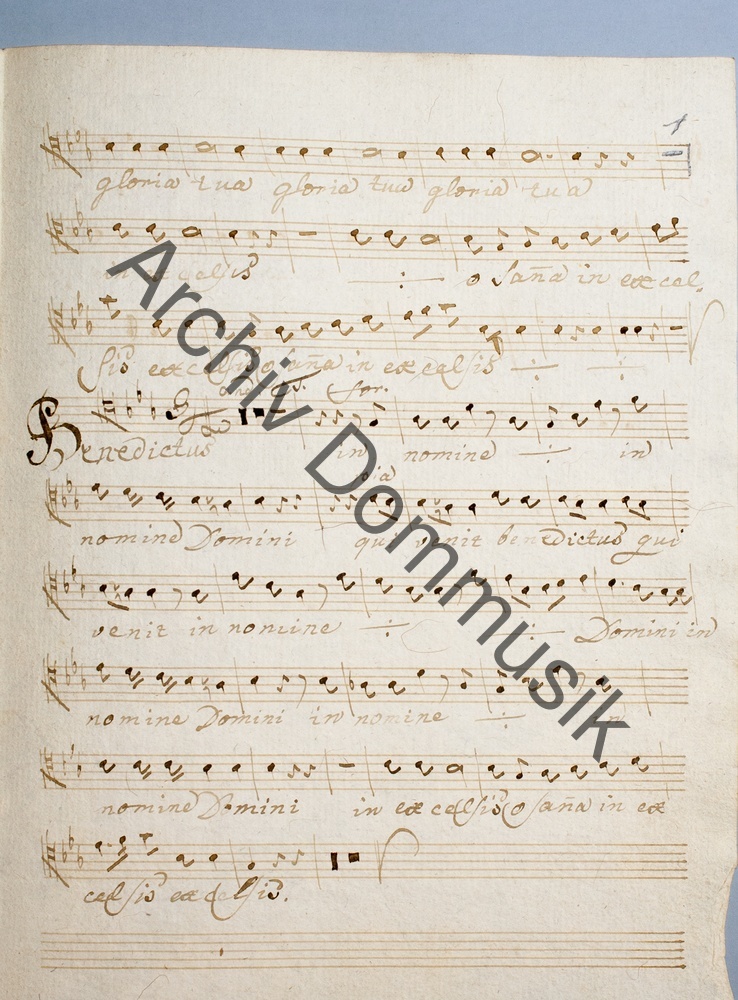 1
gloria tua gloria tua gloria tua
in excelsis osana in excel,
sis excelsis osana in excelsis
for.
Benedictus in nomine in
nomine Domini qui venit benedictus qui
venit in nomine Domini in
nomine Domini in nomine in
nomine Domini in excelsis osana in ex
celsis excelsis.
Archiv Dommusik